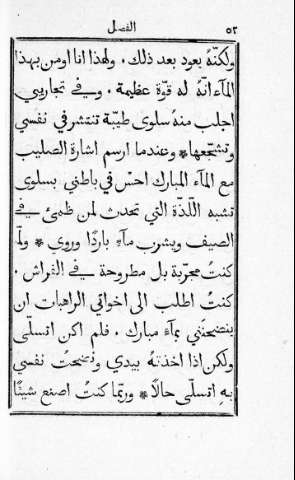 ٥٢ الفصل
ولكنّهُ يعود بعد ذلك . ولهذا انا اومن بهذا
المآء انّهُ لهُ قوّة عظيمة . وفي تجاريبي
اجلب منهُ سلوى طيّبة تنتشر في نفسي
وتشجّعها * وعندما ارسم اشارة الصليب
مع المآء المبارك احسّ في باطني بسلوى
تشبه اللّذّة التي تحدث لمن ظمئ في
الصيف ويشرب مآء باردًا وروي * ولمّا
كنتُ مجرّبة بل مطروحة في الفراش .
كنتُ اطلب الى اخواتي الراهبات ان
ينضحنني بمآء مبارك . فلم اكن اتسلّى
ولكن اذا اخذتهُ بيدي ونضحتُ نفسي
بهِ اتسلّى حالًا * وربّما كنتُ اصنع شيئًا